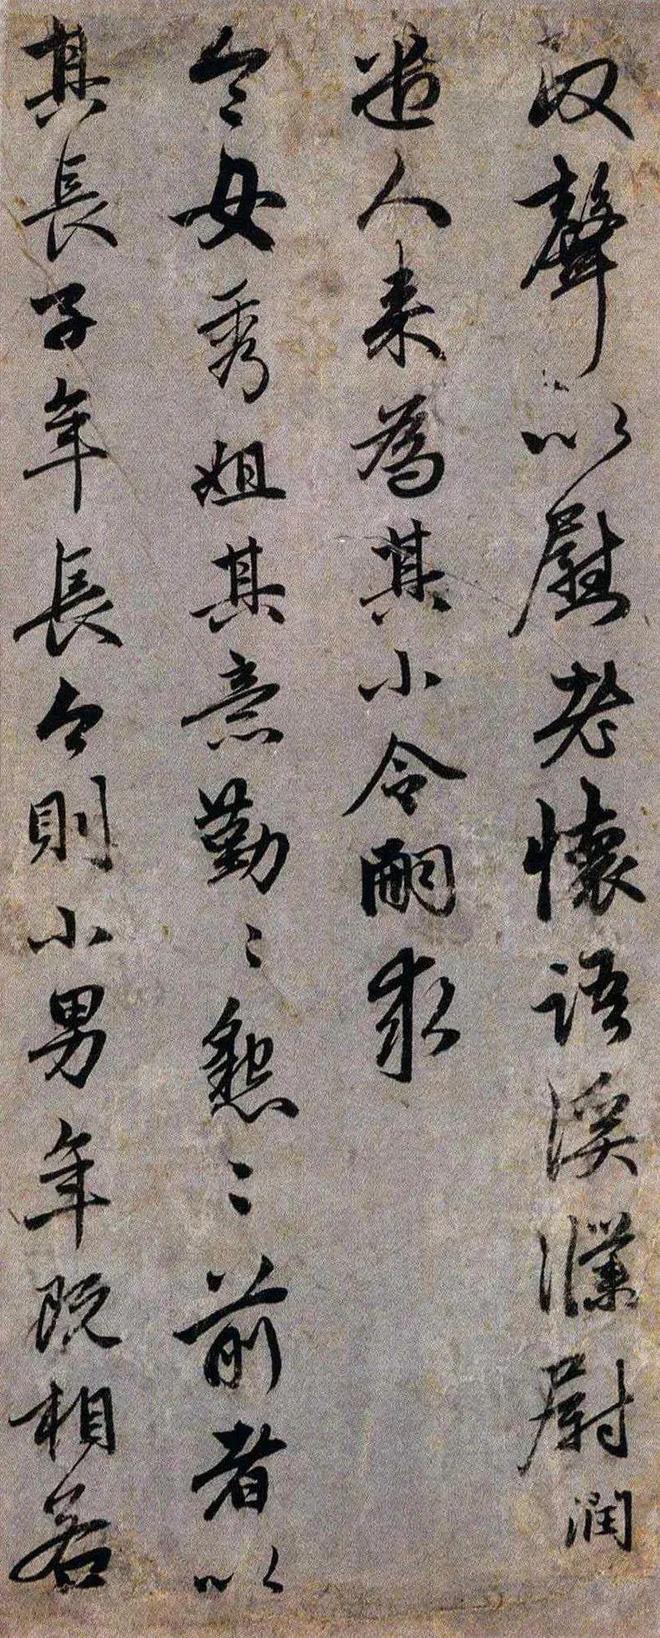 收聲以慰老懷語溪濮尉潤
遣人来為其小令嗣求
令女秀姐其意勤〻懇〻前者以
其長子年長今則小男年既相若